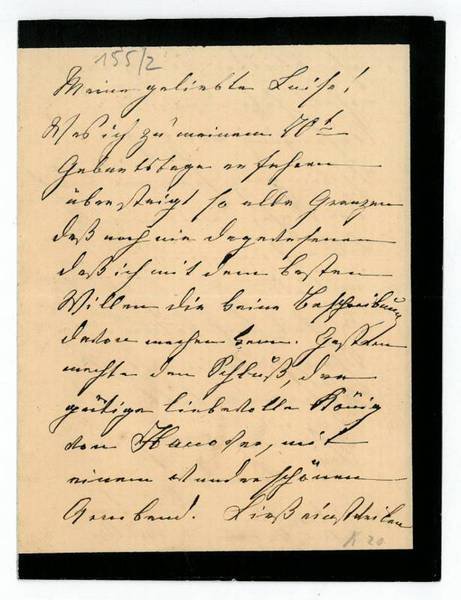 155/2
Meine geliebte Luise!
Was ich zu meinem 70t
Geburtstage erfahren
übersteigt so alle Grenzen
des noch nie dagewesenen
daß ich mit dem besten
Willen dir keine Beschreibung
davon machen kann. Gestern
machte den Schluß, der
gütige liebevolle König
von Hanover, mit
einem wunderschönen
Armband. Ließ einstweilen
K 20